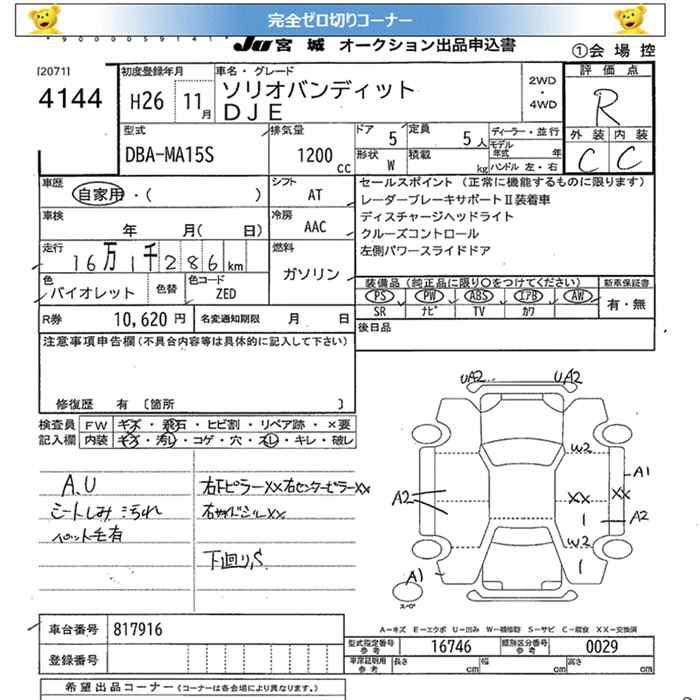 完全ゼロ切りコーナー
JU 宮城 オークション出品申込書
①会場控
[2071]
4144
初度登録年月
H26 11月
車名・グレード
ソリオバンディット
DJE
2WD
・
4WD
評価点
R
外装 内装
C C
型式
DBA-MA15S
排気量
1200 cc
ドア 5
定員 5人
形状 W
積載 kg
ディーラー・並行
モデル年式 年
ハンドル 左・右
車歴
自家用・( )
シフト
AT
車検
年 月( 日)
冷房
AAC
走行
16万1千286km
燃料
ガソリン
色
バイオレット
色替
色コード
ZED
R券 10,620円
名変通知期限 月 日
セールスポイント (正常に機能するものに限ります)
レーダーブレーキサポートⅡ装着車
ディスチャージヘッドライト
クルーズコントロール
左側パワースライドドア
装備品(純正品に限り○をつけてください)
新車保証書
PS PW ABS エアB AW
SR ナビ TV カワ
有・無
後日品
注意事項申告欄(不具合内容等は具体的に記入して下さい)
修復歴 有 〔箇所 〕
検査員記入欄
FW キズ・飛石・ヒビ割・リペア跡・×要
内装 キズ・汚レ・コゲ・穴・スレ・キレ・破レ
A.U
シートしみ 汚れ
ペット毛有
右Fピラーxx右センターピラーxx
右サイドシルxx
下廻りS
UA2 UA2
W2
A1
A2
XX XX
1 A2
W2
A1
1
スペア
A-キズ E-エクボ U-凹み W-補修跡 S-サビ C-腐食 XX-交換済
車台番号 817916
登録番号
型式指定番号 参考 16746
類別区分番号 参考 0029
車庫証明用 参考 長さ cm 幅 cm 高さ cm
希望出品コーナー(コーナーは各会場により異なります。)